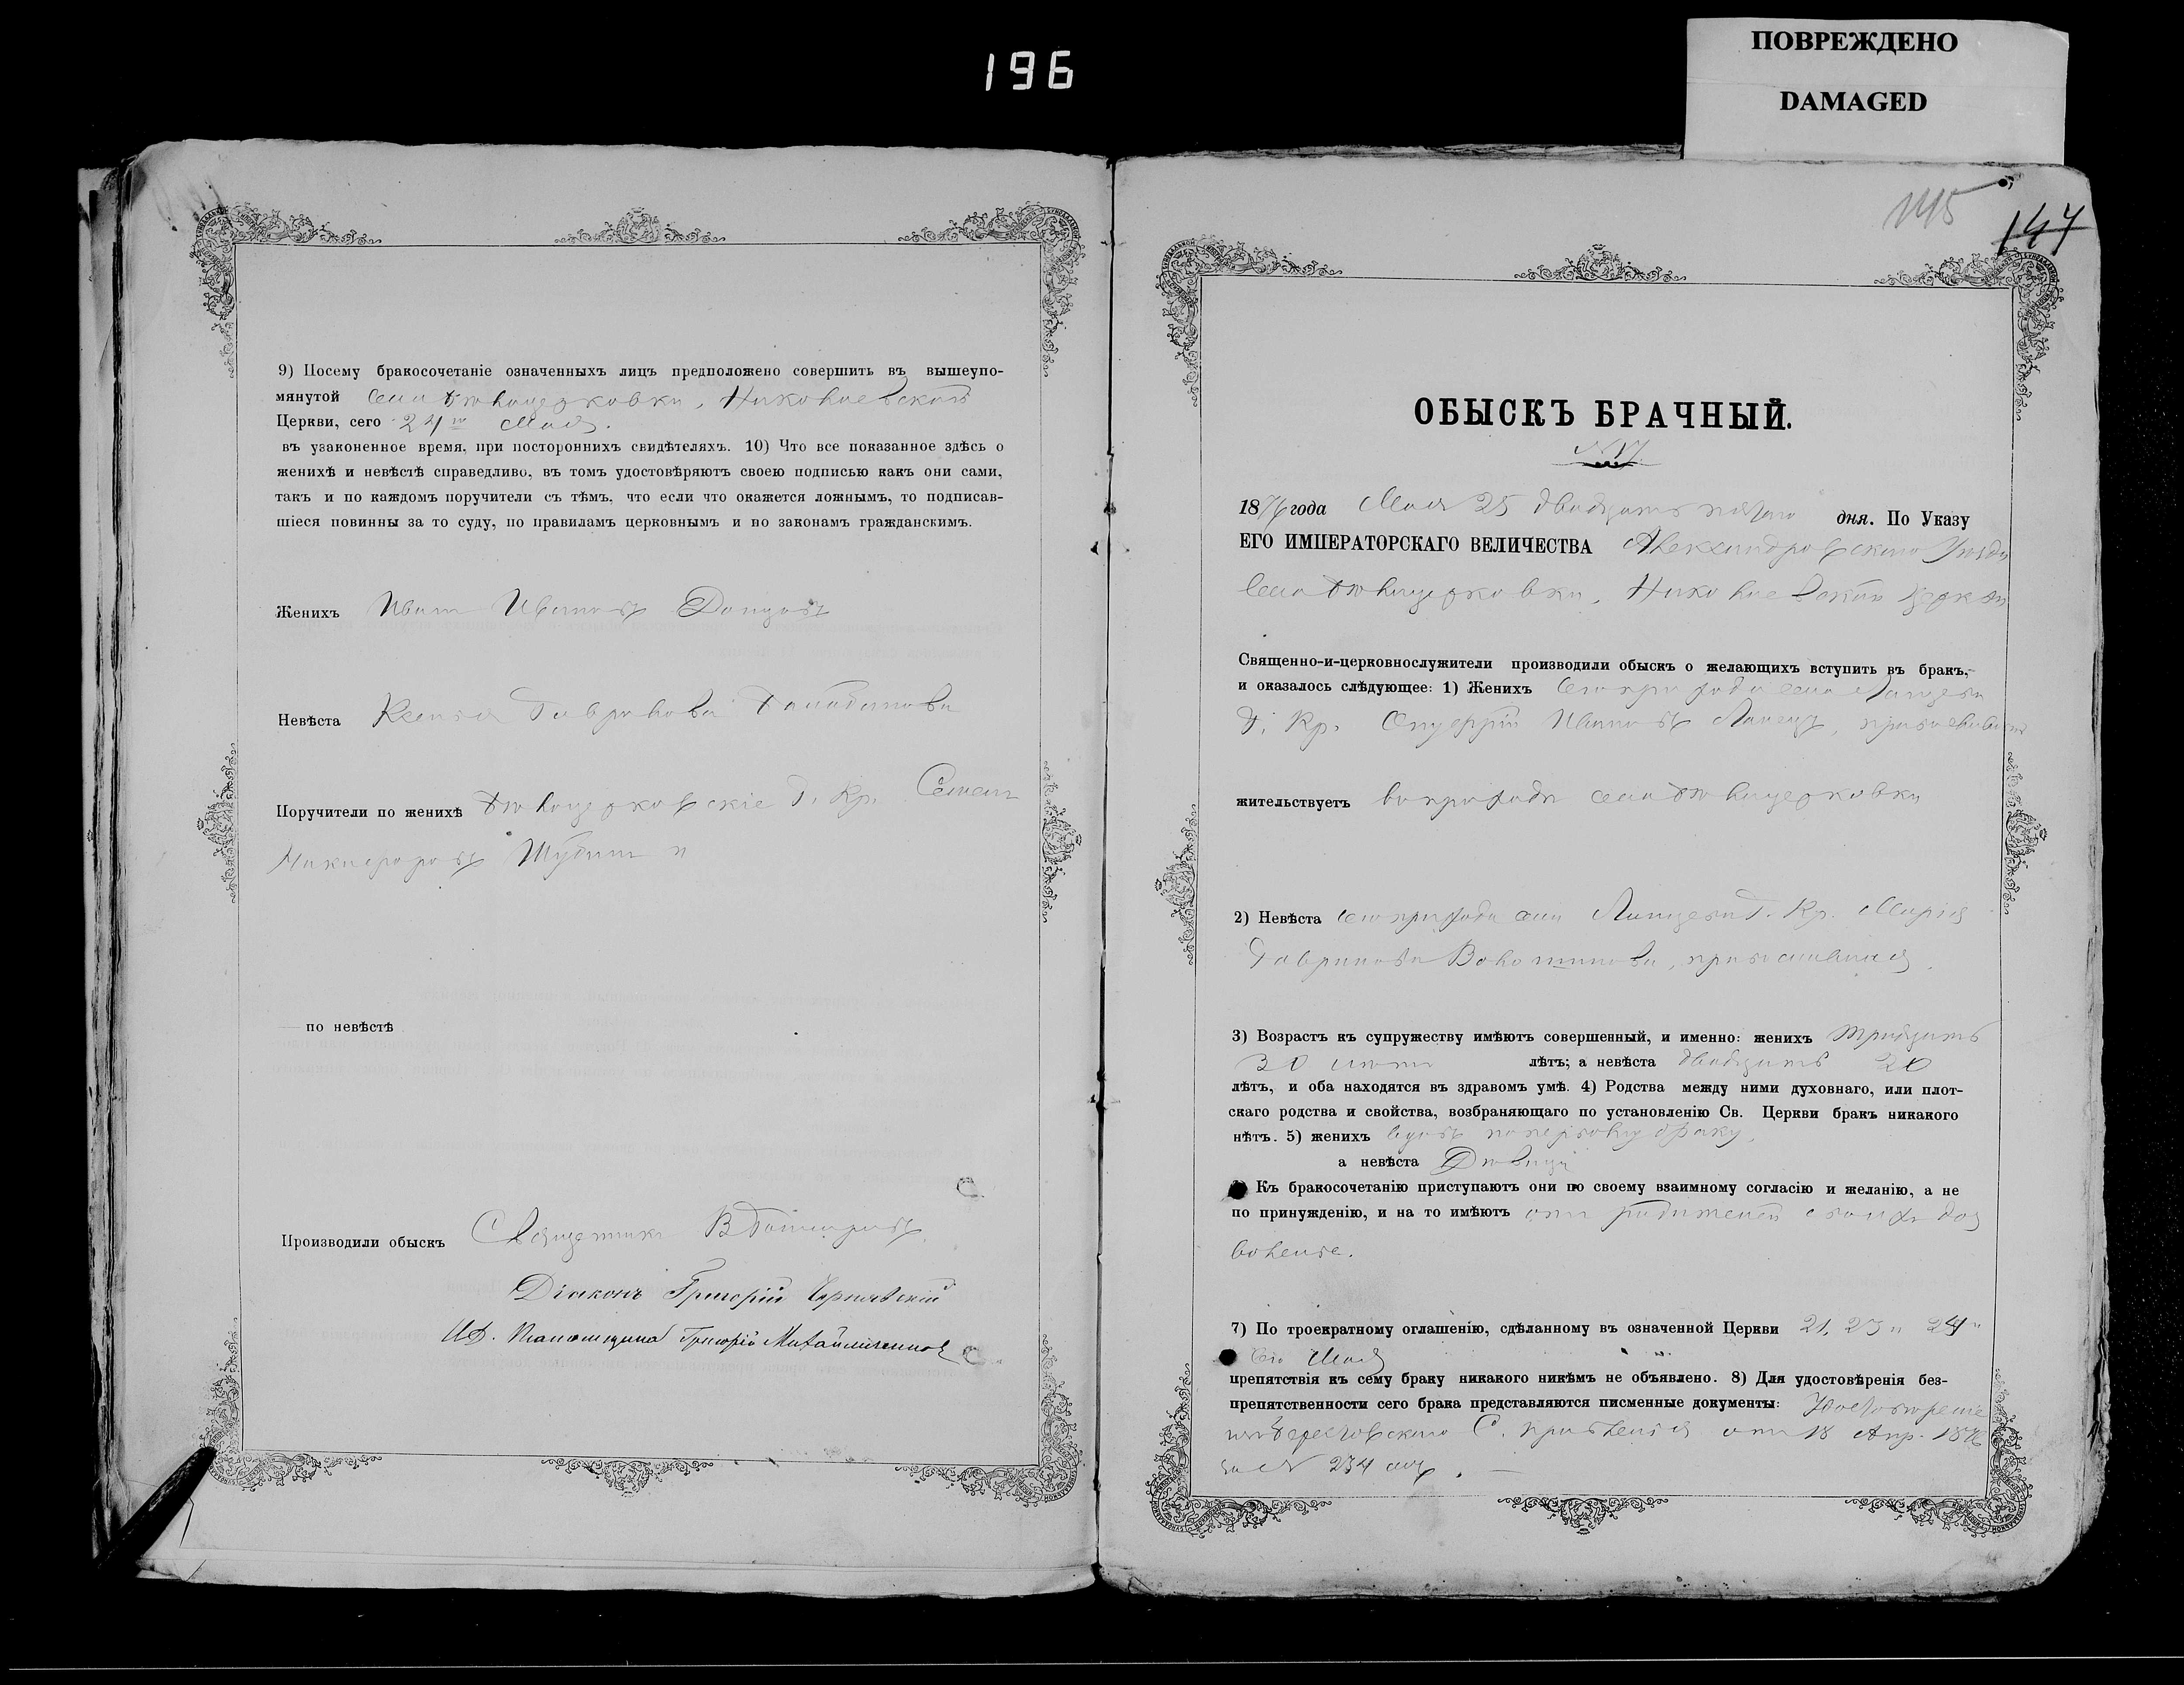 196
ПОВРЕЖДЕНО
DAMAGED
9) Посему бракосочетаніе означенныхъ лицъ предположено совершить въ вышеупо-
мянутой села Николаевской
Церкви, сего 24го Мая.
въ узаконенное время, при постороннихъ свидѣтеляхъ. 10) Что все показанное здѣсь о
женихѣ и невѣстѣ справедливо, въ томъ удостовѣряютъ своею подписью какъ они сами,
такъ и по каждомъ поручители съ тѣмъ, что если что окажется ложнымъ, то подписав-
шіеся повинны за то суду, по правиламъ церковнымъ и по законамъ гражданскимъ.
Женихъ Иванъ Ивановъ Донцовъ
Невѣста Ксенія Гаврилова
Поручители по женихѣ Г. Кр. Семенъ
Никифоровъ и
по невѣстѣ
Производили обыскъ Священникъ
Діаконъ Григорій Чернявскій
И.Д. Псаломщика Григорій
145
147
ОБЫСКЪ БРАЧНЫЙ.
№ 17.
1876 года Мая 25 двадцать пятаго дня. По Указу
ЕГО ИМПЕРАТОРСКАГО ВЕЛИЧЕСТВА Александровскаго Уѣзда
села Николаевской Церкви
Священно-и-церковнослужители производили обыскъ о желающихъ вступить въ бракъ,
и оказалось слѣдующее: 1) Женихъ сего прихода села
Г. Кр. Ивановъ
жительствуетъ въ приходѣ села
2) Невѣста сего прихода села Г. Кр. Марія
Гаврилова
3) Возрастъ къ супружеству имѣютъ совершенный, и именно: женихъ тридцать
30 лѣтъ; а невѣста двадцать 20
лѣтъ, и оба находятся въ здравомъ умѣ. 4) Родства между ними духовнаго, или плот-
скаго родства и свойства, возбраняющаго по установленію Св. Церкви бракъ никакого
нѣтъ. 5) женихъ вдовъ по первому браку,
а невѣста Дѣвица
Къ бракосочетанію приступаютъ они по своему взаимному согласію и желанію, а не
по принужденію, и на то имѣютъ отъ родителей своихъ доз
воленіе.
7) По троекратному оглашенію, сдѣланному въ означенной Церкви 21, 23 и 24го
сего Мая
препятствія къ сему браку никакого никѣмъ не объявлено. 8) Для удостовѣренія без-
препятственности сего брака представляются писменные документы:
С. Правленія отъ 18 Апр. 1876
за № 234